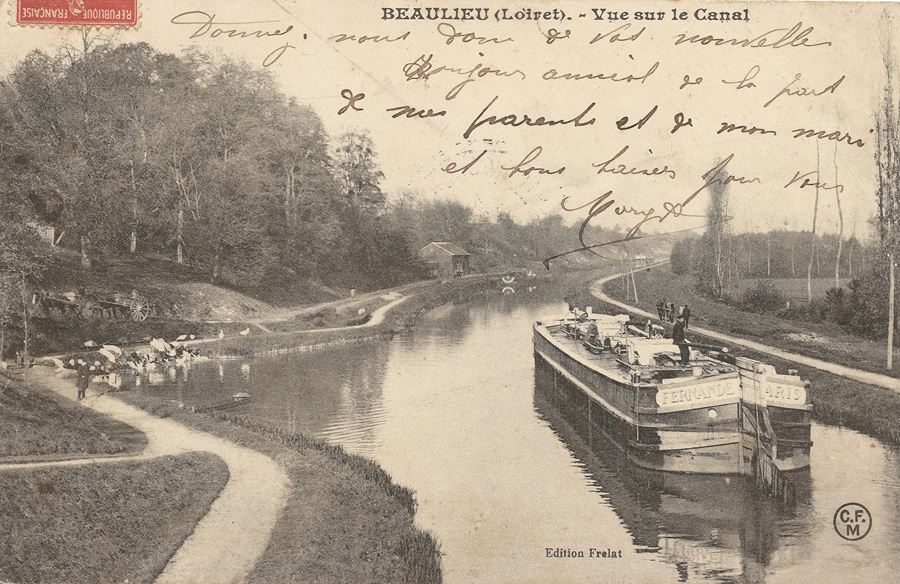 REPUBLIQUE FRANÇAISE
BEAULIEU (Loiret). - Vue sur le Canal
Donnez nous donc de vos nouvelle
Bonjour amical de la part
de mes parents et de mon mari
et bons baisers pour vous
FERNANDE
PARIS
Edition Frelat
C.F.
M